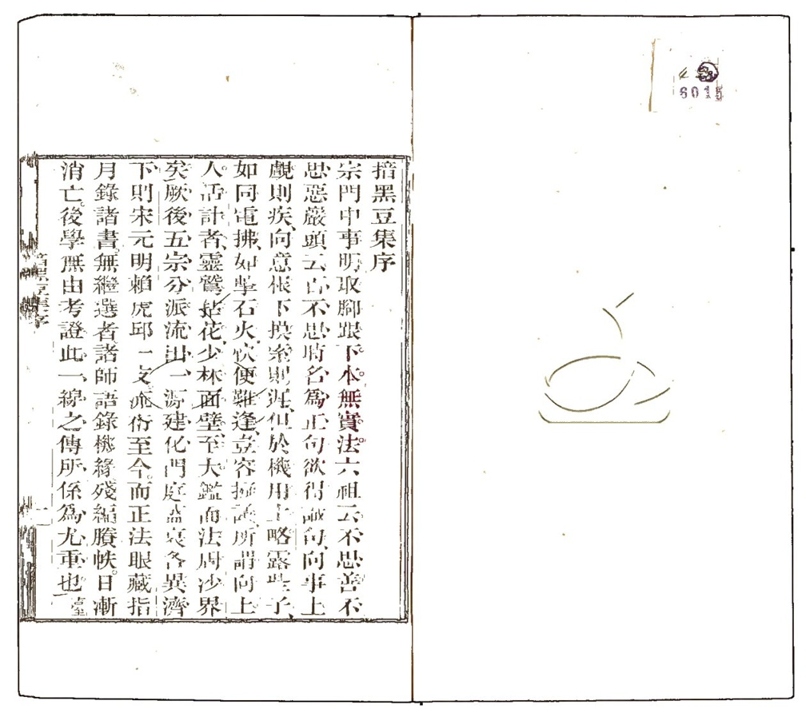 揞黑豆集序
宗門中事明取腳跟下本無實法六祖云不思善不
思惡巖頭云古不思時名為正句欲得 句向事上
覷則疾向意根下摸索則遲但於機用上略露些子
如同電拂如擊石火 便難逢豈容擬議所謂向上
人活計者靈鷲拈花少林面壁至大鑑而法周沙界
矣厥後五宗分派流出一源建化門庭盛衰各異濟
下則宋元明賴虎邱一支 衍至今而正法眼藏指
月錄諸書無繼選者諸師語錄機緣殘編賸帙日漸
消亡後學無由考證此一線之傳所係為尤重也
揞黑豆集序
一
6015